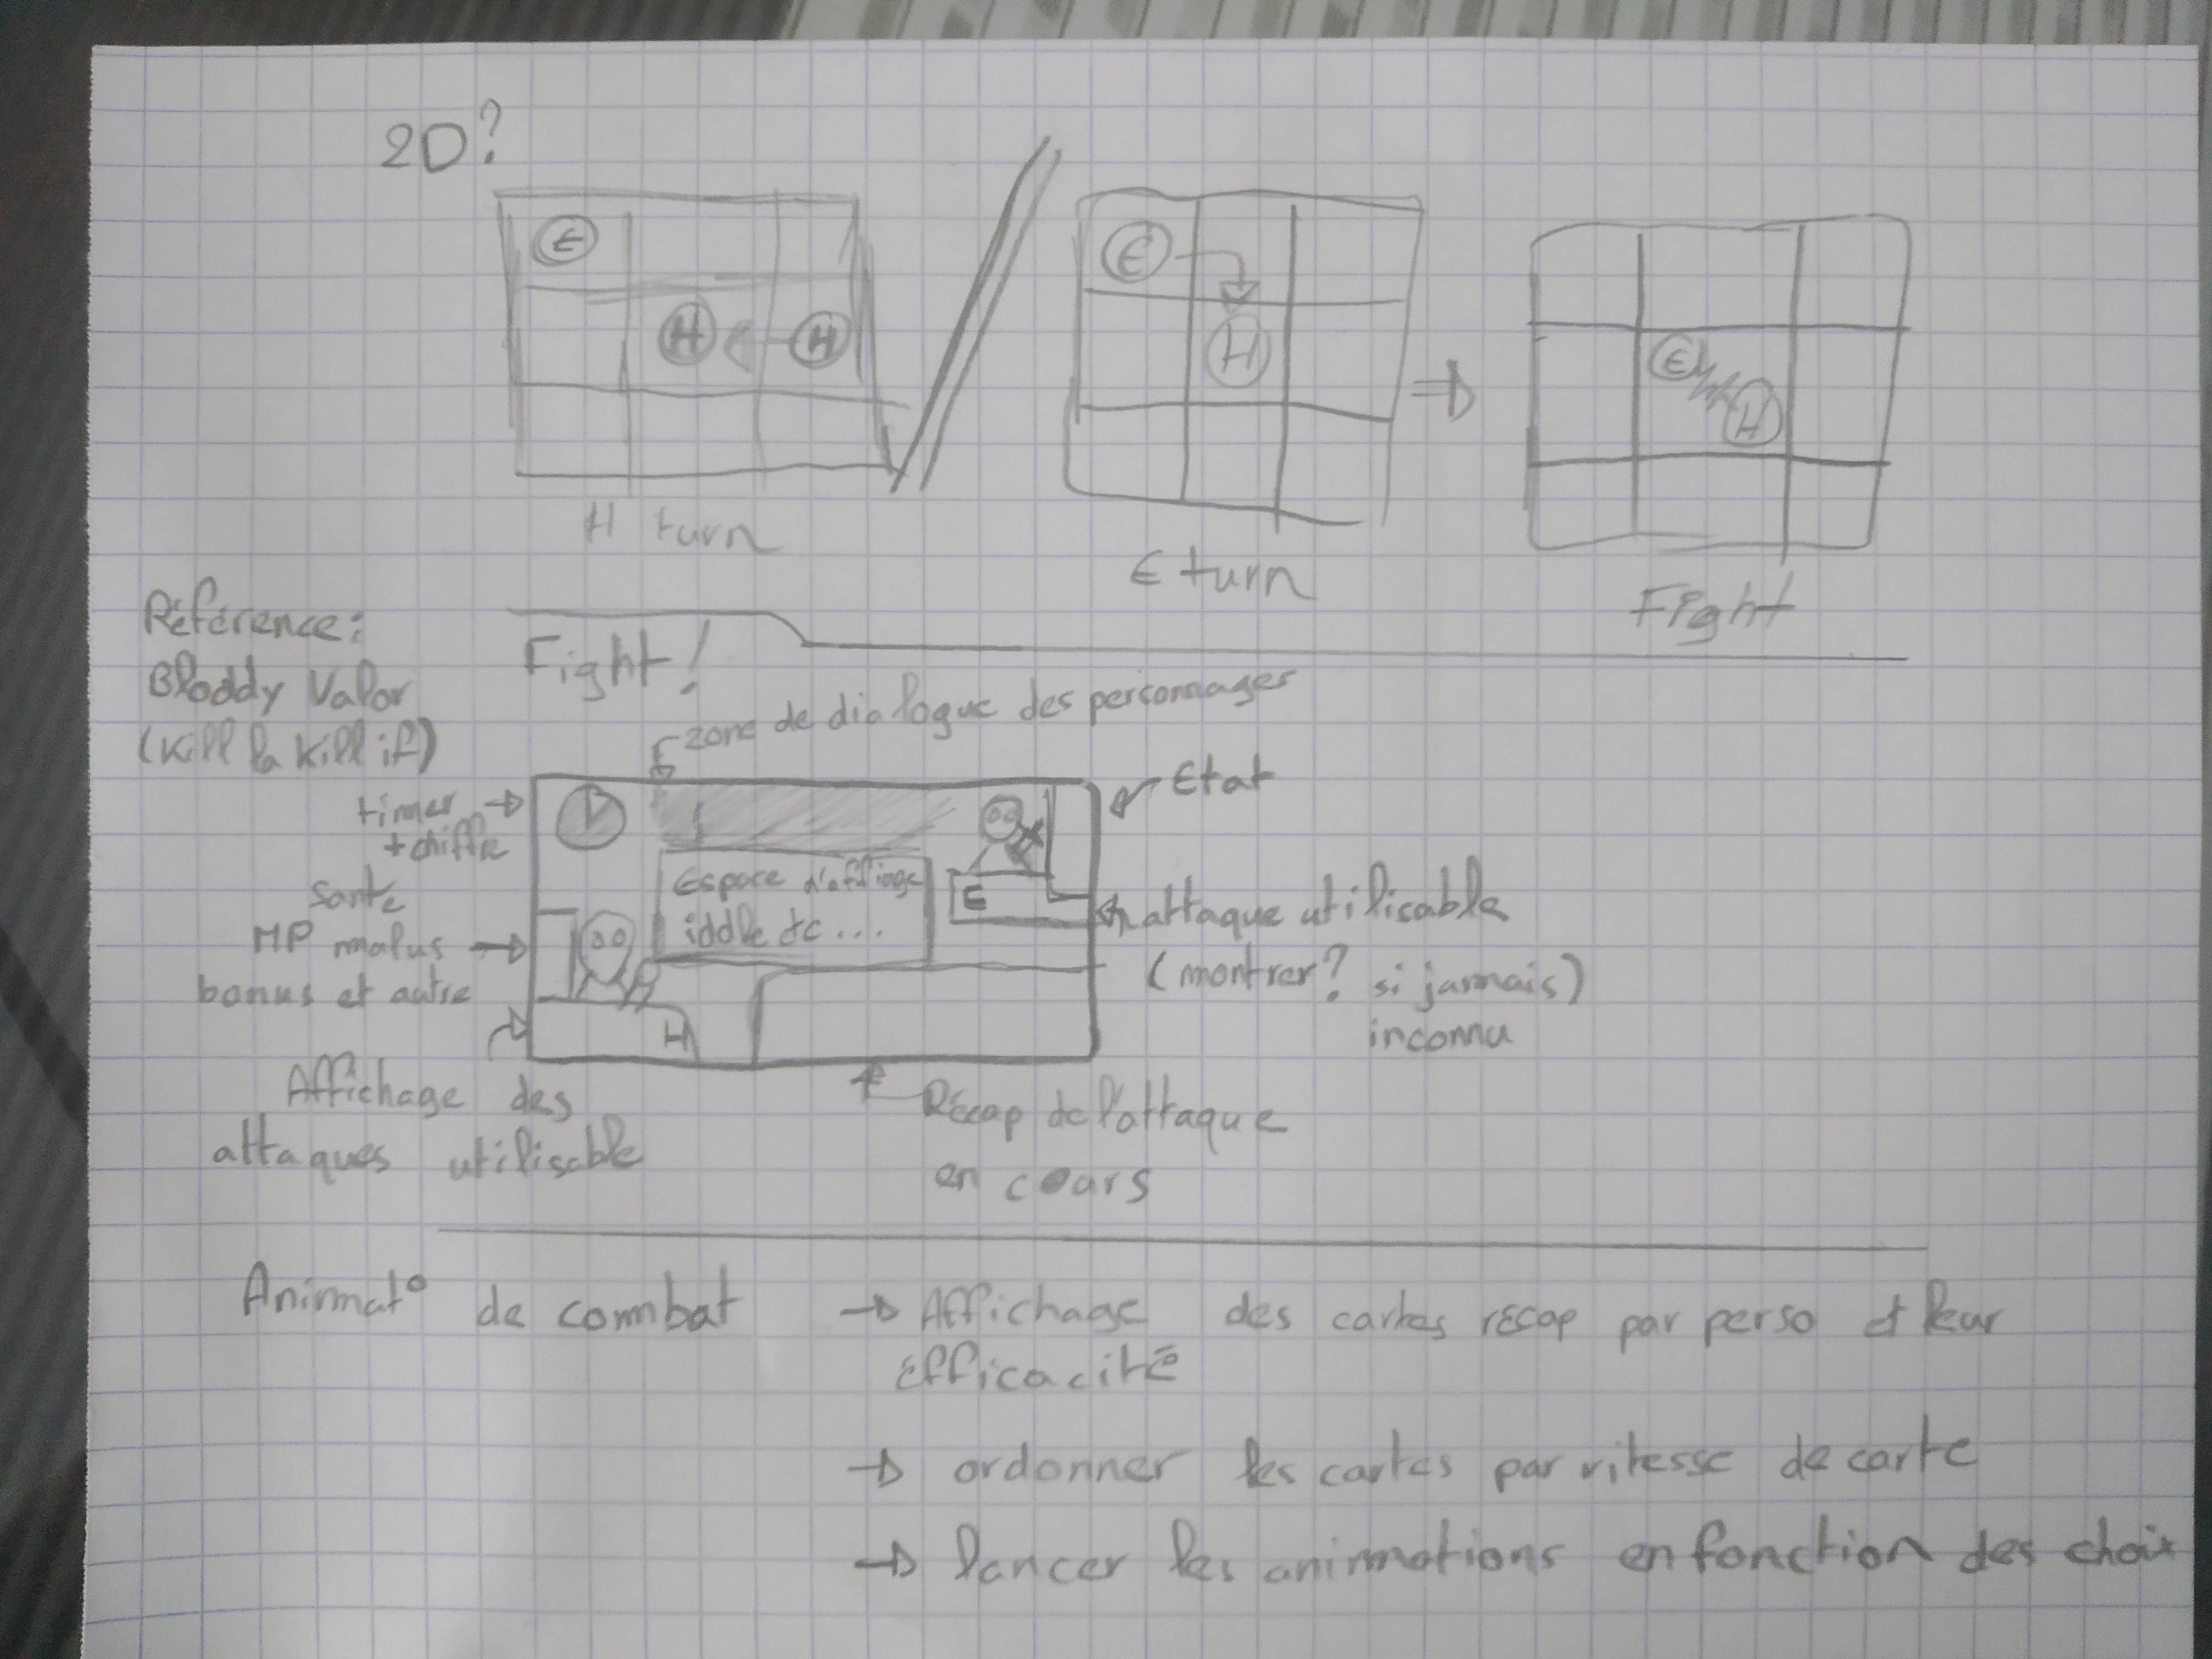 2D?
E
H
H
H turn
E
H
E turn
E
H
Fight
Référence:
Bloddy Valor
(Kill la Kill if)
Fight!
zone de dialogue des personnages
timer
+ chiffre
Etat
Espace d'affiage
iddle etc...
E
santé
MP malus
bonus et autre
attaque utilisable
(montrer? si jamais)
inconnu
H
Affichage des
attaques utilisable
Récap de l'attaque
en cours
Animat° de combat
→ Affichage des cartes récap par perso et leur
efficacité
→ ordonner les cartes par vitesse de carte
→ lancer les animations en fonction des choix